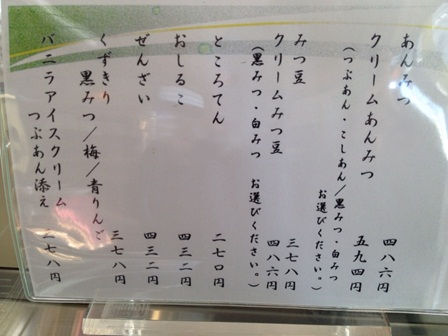 あんみつ 四八六円
クリームあんみつ 五九四円
(つぶあん・こしあん/黒みつ・白みつ お選びください。)
みつ豆 三七八円
クリームみつ豆 四八六円
(黒みつ・白みつ お選びください。)
ところてん 二七〇円
おしるこ 四三二円
ぜんざい 四三二円
くずきり 三七八円
黒みつ/梅/青りんご
バニラアイスクリーム
つぶあん添え 二七八円